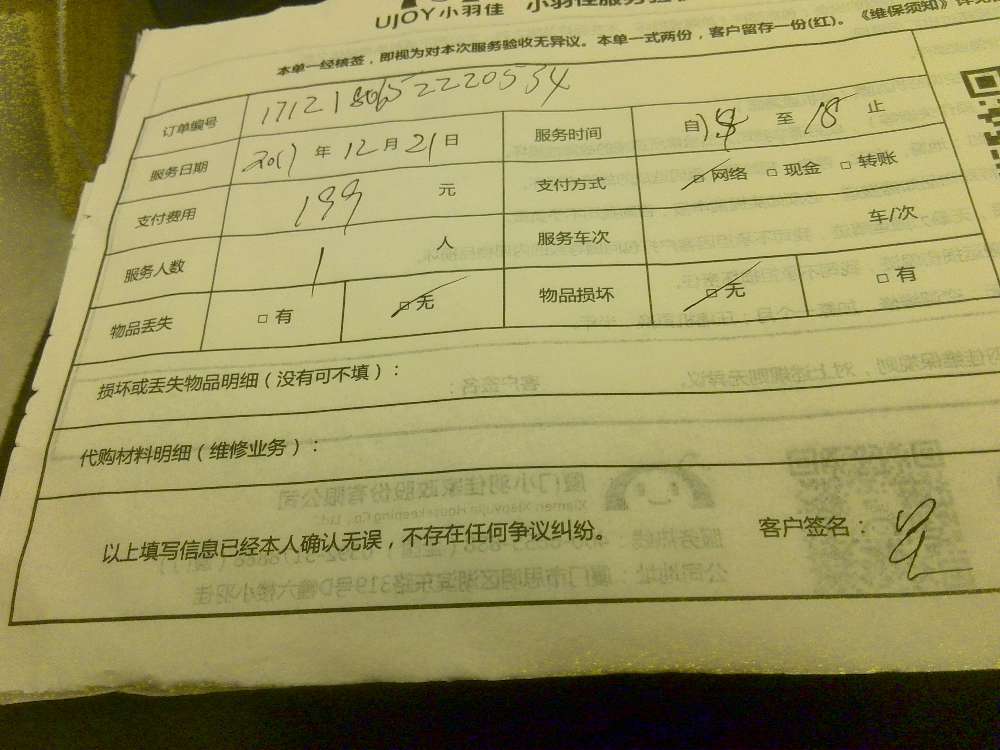 UJOY小羽佳 小羽佳服务验
本单一经核签，即视为对本次服务验收无异议。本单一式两份，客户留存一份(红)。《维保须知》详见
订单编号
服务日期 2017 年 12 月 21 日 服务时间 自 至 18 止
支付费用 199 元 支付方式 □ 网络 □ 现金 □ 转账
服务人数 1 人 服务车次 车/次
物品丢失 □ 有 □ 无 物品损坏 □ 无 □ 有
损坏或丢失物品明细（没有可不填）：
代购材料明细（维修业务）：
以上填写信息已经本人确认无误，不存在任何争议纠纷。 客户签名：